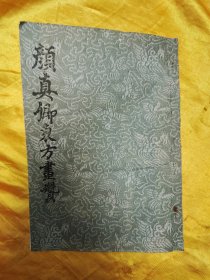 顏真卿東方畫贊